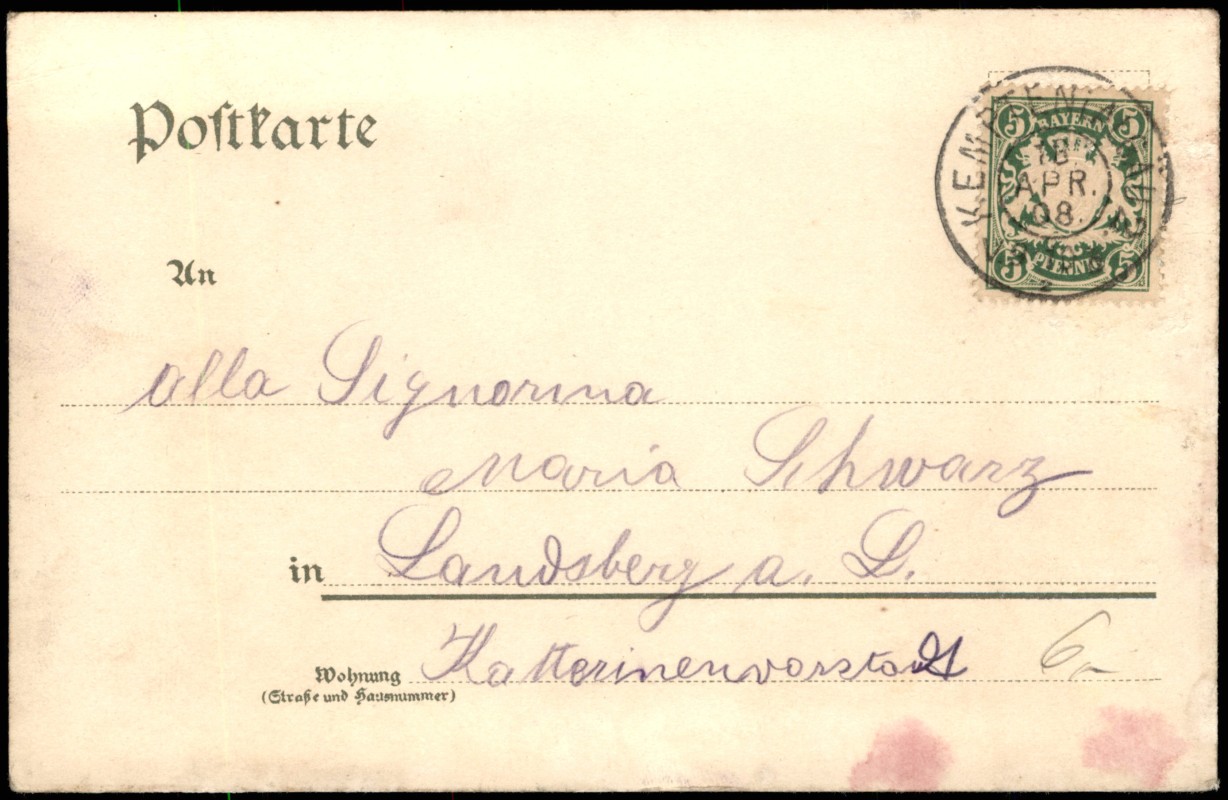 Postkarte
5 BAYERN 5
KEMPTEN
18.
APR.
08.
5 PFENNIG 5
An
alla Signorina
Maria Schwarz
in Landsberg a. L.
Wohnung Katterinenvorstadt 6
(Straße und Hausnummer)